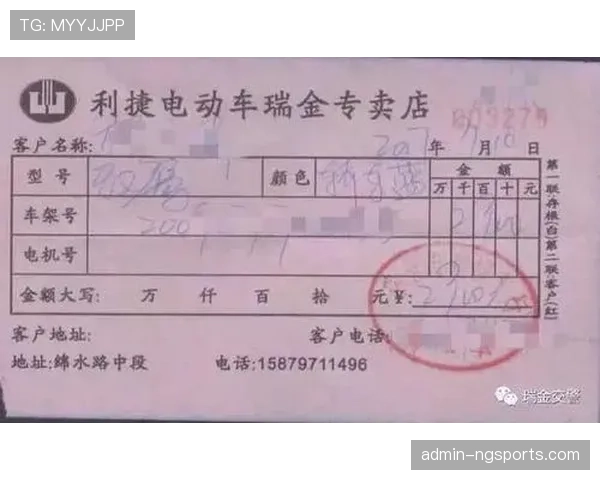 TG: MYYJJPP
利捷电动车瑞金专卖店
客户名称: 2017 年 7 月 10 日
型号 颜色 金额
万 千 百 十 元
车架号 200
电机号
金额大写: 万 仟 百 拾 元 ¥:
客户地址: 客户电话:
地址:錦水路中段 电话:15879711496
第一联存根(白)第二联客户(红)
瑞金交警
admin-ngsports.com